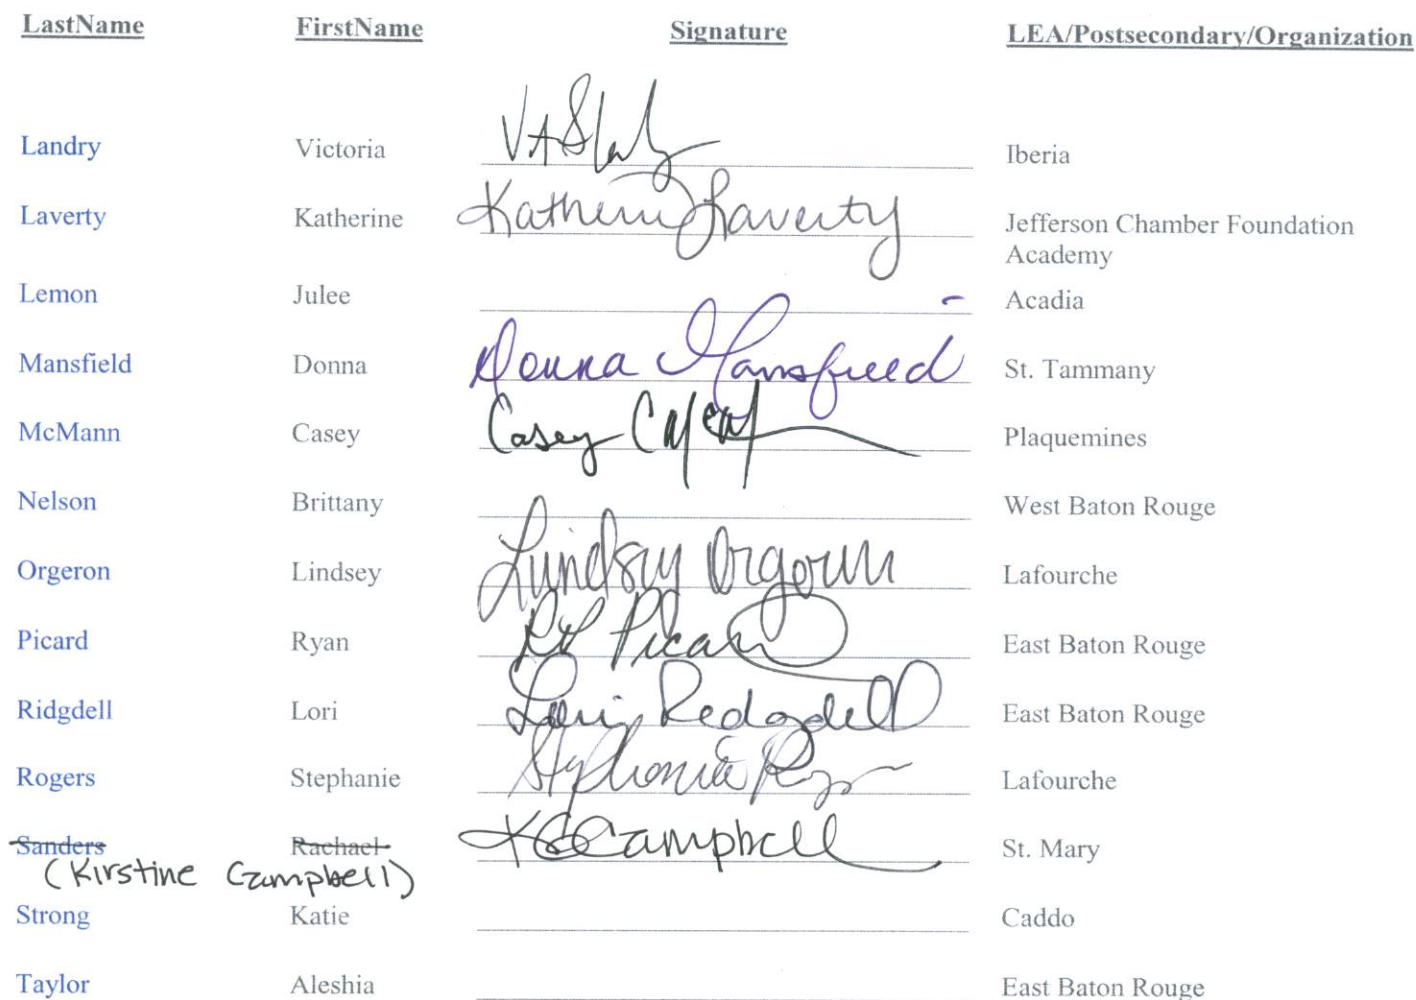 LastName FirstName Signature LEA/Postsecondary/Organization
Landry Victoria Iberia
Laverty Katherine Katherine Laverty Jefferson Chamber Foundation
Academy
Lemon Julee Acadia
Mansfield Donna Donna Mansfield St. Tammany
McMann Casey Casey Plaquemines
Nelson Brittany West Baton Rouge
Orgeron Lindsey Lindsey Orgeron Lafourche
Picard Ryan Picard East Baton Rouge
Ridgdell Lori Lori Ridgdell East Baton Rouge
Rogers Stephanie Stephanie Lafourche
Sanders Rachael KCCampbell St. Mary
(Kirstine Campbell)
Strong Katie Caddo
Taylor Aleshia East Baton Rouge